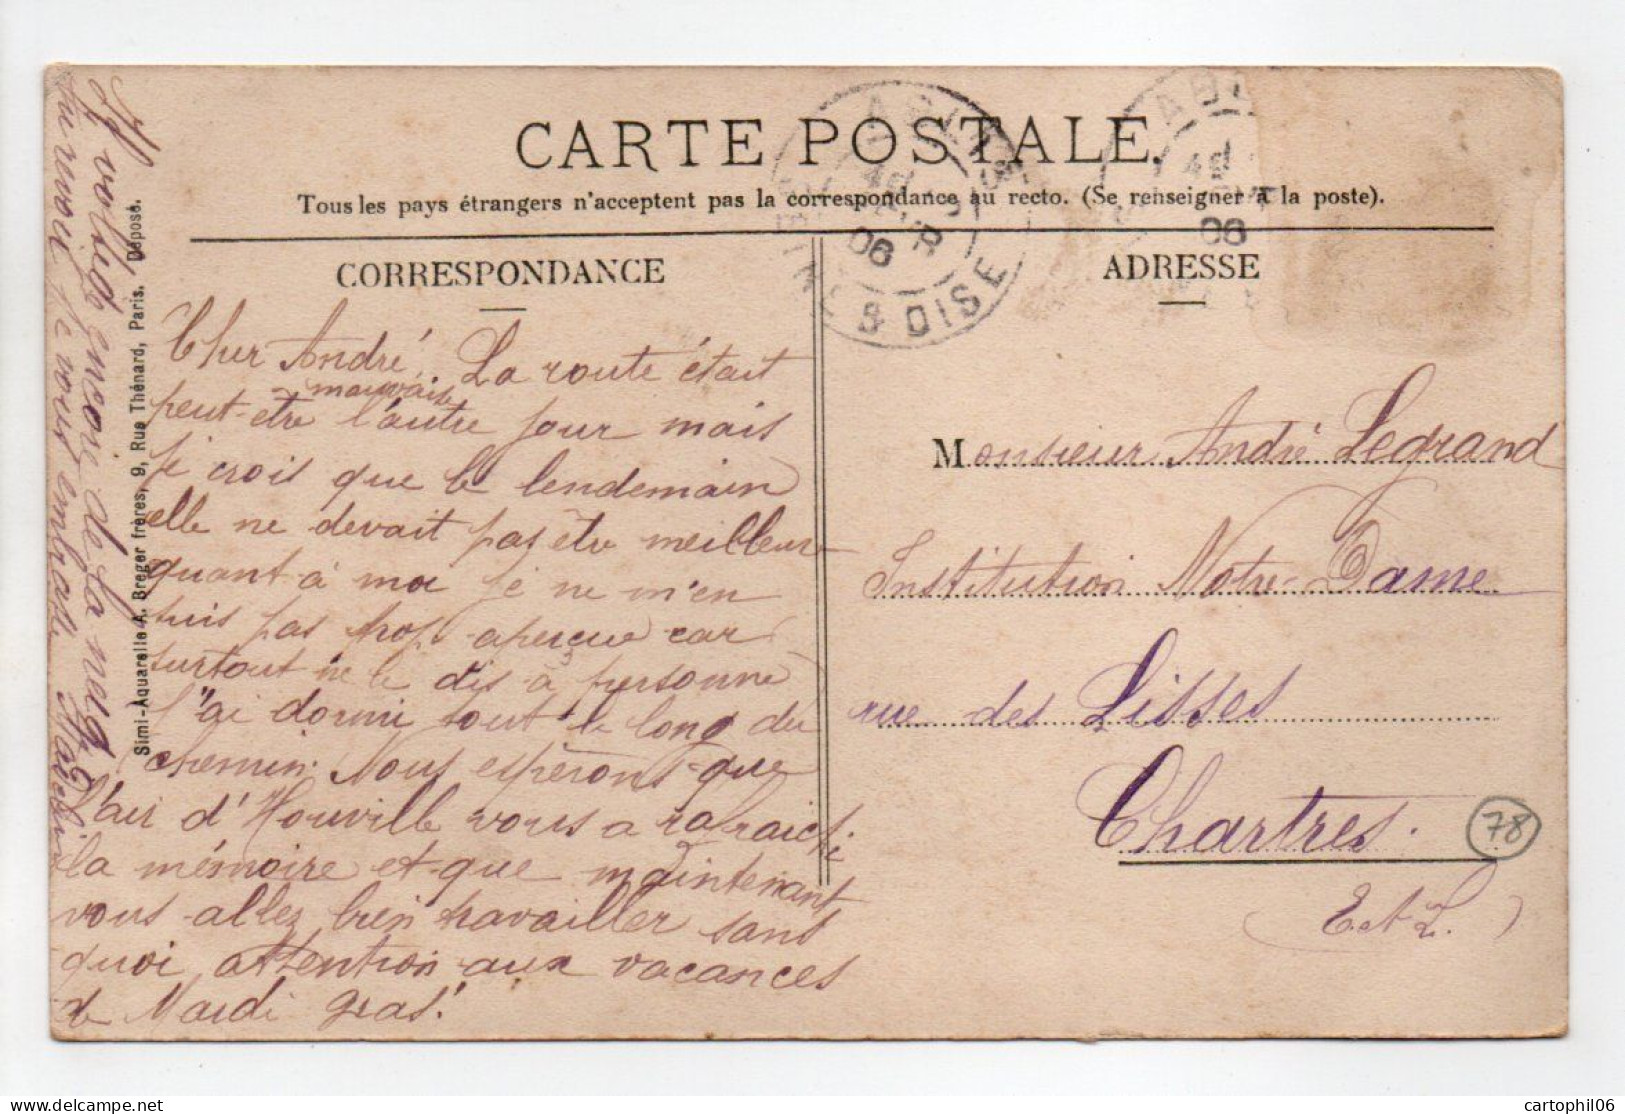 CARTE POSTALE.
Tous les pays étrangers n'acceptent pas la correspondance au recto. (Se renseigner à la poste).
CORRESPONDANCE
Cher André. La route était
mauvaise
peut-etre l'autre jour mais
je crois que le lendemain
elle ne devait pas etre meilleure
quant à moi je ne m'en
suis pas trop aperçue car
surtout ne le dis à personne
j'ai dormi tout le long du
chemin. Nous espérons que
l'air d'Houville vous a rafraichi
la mémoire et que maintenant
vous allez bien travailler sans
quoi attention aux vacances
de Mardi gras!
Il y a encore de la neige
au revoir je vous embrasse
Simi-Aquarelle A. Breger frères, 9, Rue Thénard, Paris. Déposé.
ADRESSE
Monsieur André Legrand
Institution Notre-Dame
rue des Lisses
Chartres.
(E. et L.)
78
ABLIS
4E
06
& OISE
ABL
4E
06
cartophil06